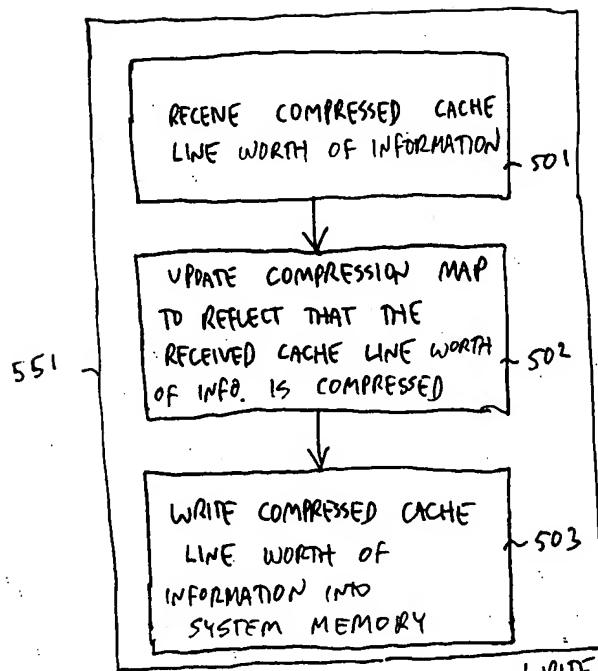 RECEIVE COMPRESSED CACHE
LINE WORTH OF INFORMATION
501
UPDATE COMPRESSION MAP
TO REFLECT THAT THE
RECEIVED CACHE LINE WORTH
OF INFO. IS COMPRESSED
502
551
WRITE COMPRESSED CACHE
LINE WORTH OF
INFORMATION INTO
SYSTEM MEMORY
503